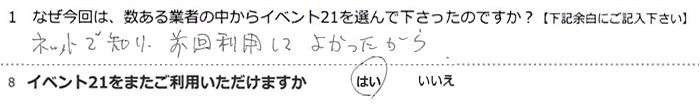 1 なぜ今回は、数ある業者の中からイベント21を選んで下さったのですか？【下記余白にご記入下さい】
ネットで知り、前回利用して よかったから
8 イベント21をまたご利用いただけますか はい いいえ